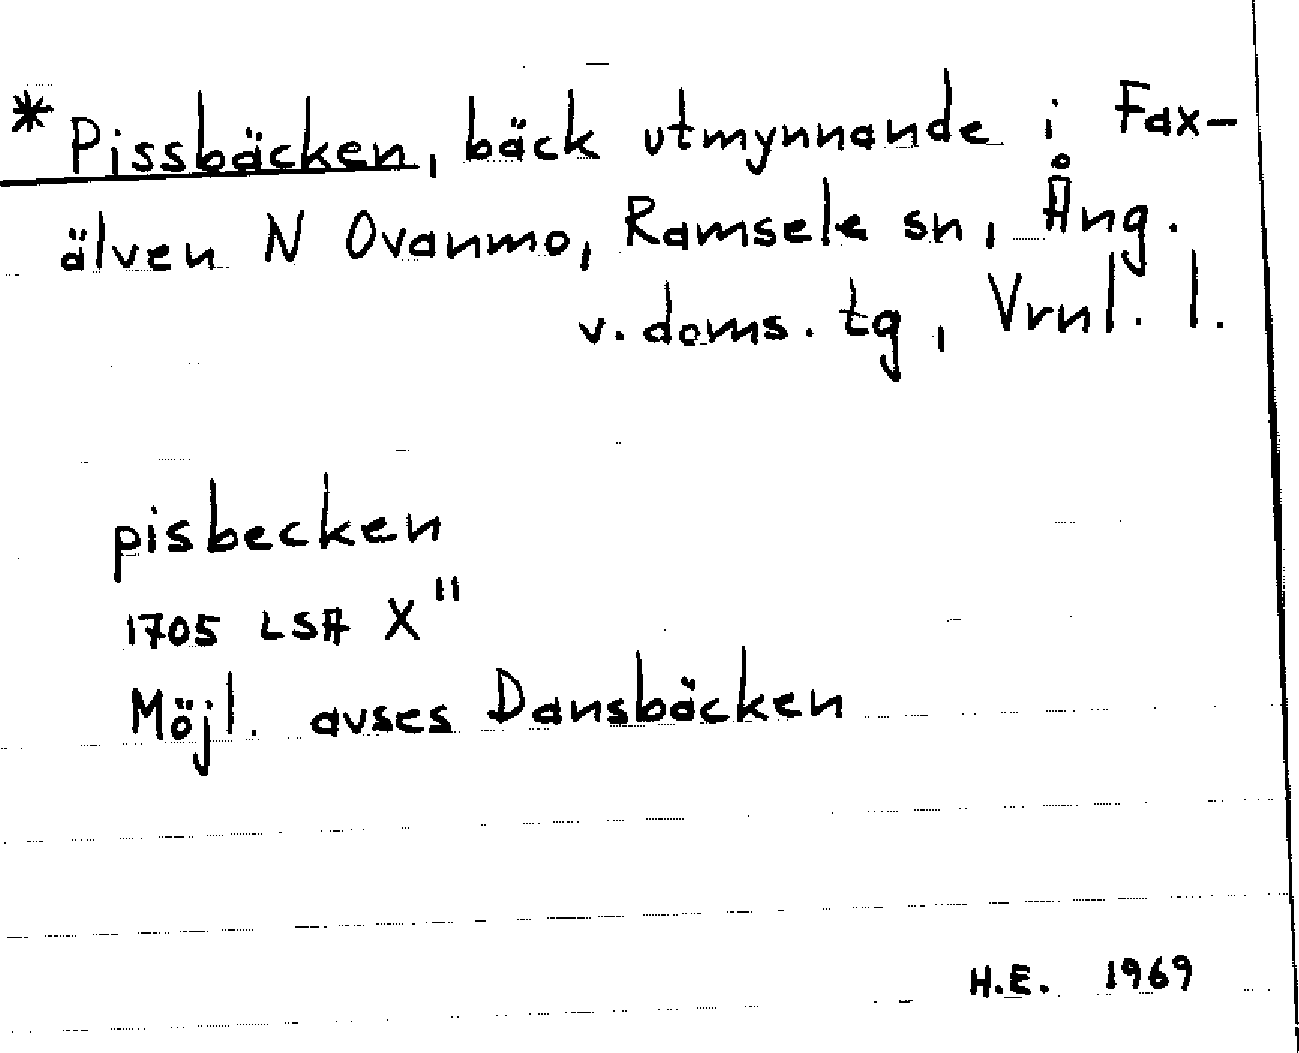 * Pissbäcken, bäck utmynnande i Fax-
älven N Ovanmo, Ramsele sn, Ång.
v. doms. tg, Vrnl. l.
pisbecken
1705 LSA X"
Möjl. avses Dansbäcken
H.E. 1969